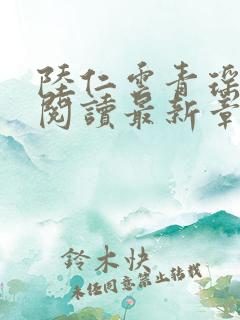 陸仁雲青瑶
閱讀最新章
鈴木快
未經同意禁止轉載